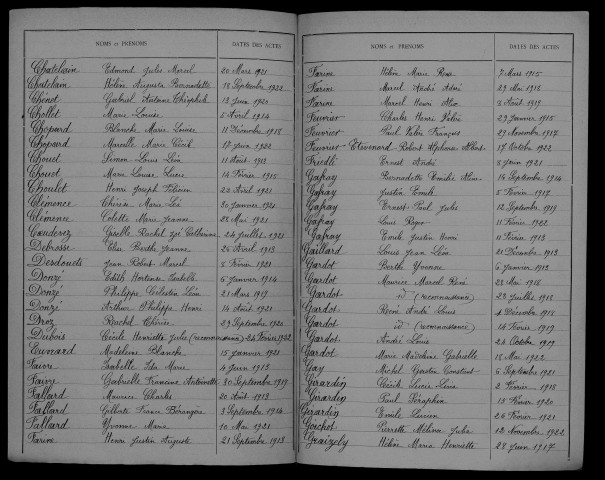 NOMS et PRÉNOMS DATES DES ACTES
Chatelain Edmond Jules Marcel 20 Mars 1921
Chatelain Hélène Augusta Bernadette 18 Septembre 1922
Chenot Gabriel Antoine Théophile 18 Juin 1920
Chollet Marie Louise 5 Avril 1914
Chopard Blanche Marie Louise 11 Décembre 1918
Chopard Marcelle Marie Cécile 17 Juin 1922
Chouet Simon Louis Léon 11 Août 1918
Chouet Marie Louise Lucie 14 Février 1915
Choulet Henri Joseph Félicien 22 Avril 1921
Clémence Thérèse Marie Léa 30 Janvier 1921
Clémence Colette Marie Jeanne 25 Mai 1921
Giselle Rachel Zoé Catherine 24 Juillet 1921
Debrosse Elise Berthe Jeanne 25 Avril 1913
Desdouets Jean Robert Marcel 5 Février 1921
Donzé Edith Hortense Isabelle 6 Janvier 1914
Donzé Philippe Célestin Léon 21 Mars 1919
Donzé Arthur Philippe Henri 14 Août 1921
Droz Rachel Thérèse 29 Septembre 1920
Dubois Cécile Henriette Julie (reconnaissance) 24 Février 1922
Euvrard Madeleine Blanche 15 Janvier 1921
Faivre Isabelle Ida Marie 4 Juin 1913
Faivre Gabrielle Francine Antoinette 30 Septembre 1919
Fallard Maurice Charles 20 Août 1913
Fallard Gilberte France Bérangère 3 Septembre 1914
Fallard Yvonne Marie 10 Mai 1921
Farine Henri Justin Auguste 21 Septembre 1913
NOMS et PRÉNOMS DATES DES ACTES
Farine Hélène Marie Rose 7 Mars 1915
Farine Marcel André Aimé 29 Mai 1918
Farine Marcel Henri 3 Août 1919
Feuvrier Charles Henri Valère 29 Janvier 1915
Feuvrier Paul Valère François 29 Novembre 1917
Feuvrier-Etevenard Robert Alphonse Albert 17 Octobre 1922
Friedli Ernest André 8 Juin 1921
Gafray Bernadette Emilie Aline 16 Septembre 1914
Gafray Justin Emile 5 Février 1917
Gafray Ernest Paul Jules 12 Septembre 1919
Gafray Louis Roger 11 Février 1922
Gafray Emile Justin Henri 11 Février 1913
Gaillard Louis Jean Léon 21 Décembre 1913
Gardot Berthe Yvonne 6 Janvier 1913
Gardot Maurice Marcel René 22 Mai 1918
Gardot id (reconnaissance) 22 Juillet 1918
Gardot René André Louis 4 Décembre 1918
Gardot id (reconnaissance) 14 Février 1919
Gardot André Louis 24 Octobre 1919
Gardot Marie Madeleine Gabrielle 18 Mai 1922
Gay Michel Gaston Constant 6 Septembre 1921
Girardin Cécile Lucie Léone 2 Février 1918
Girardin Paul Séraphin 15 Février 1920
Girardin Emile Lucien 26 Février 1921
Goichot Pierrette Mélina Julia 12 Novembre 1922
Graizely Hélène Maria Henriette 28 Juin 1917